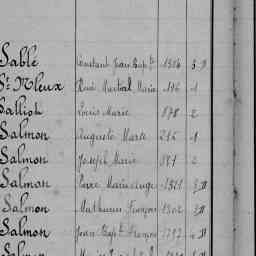 Sablé Constant Jean Bapte 1304 3 D
St Mleux René Martial Marie 116 1
Salliot Louis Marie 878 2
Salmon Auguste Marie 216 1
Salmon Joseph Marie 871 2
Salmon Pierre Marie Ange 1321 3 D
Salmon Mathurin François 1302 3 D
Salmon Jean Bapte François
Salmon